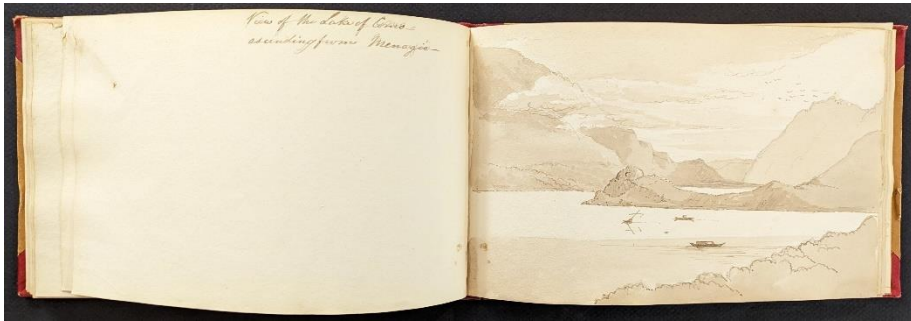 View of the Lake of Como
ascending from Menagio-